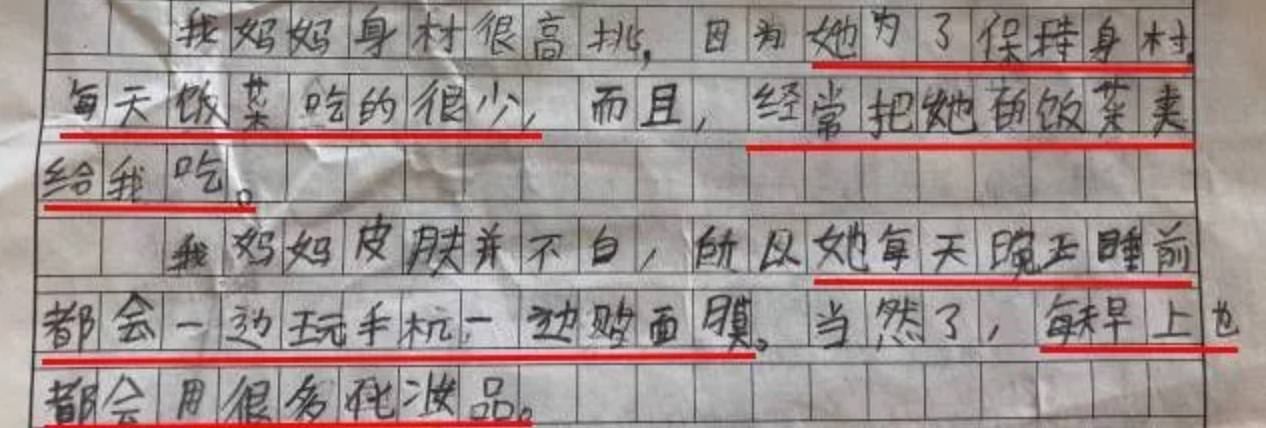 我妈妈身材很高挑，因为她为了保持身材，
每天饭菜吃的很少，而且，经常把她的饭菜夹
给我吃。
我妈妈皮肤并不白，所以她每天晚上睡前
都会一边玩手机，一边敷面膜。当然了，每天早上也
都会用很多化妆品。